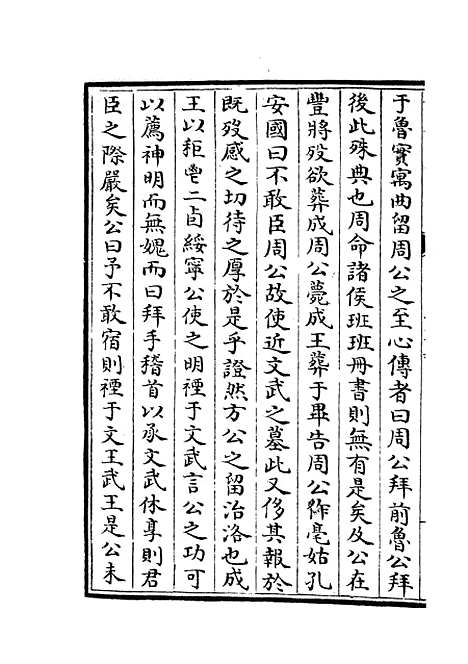 于魯實寓曲留周公之至心傳者曰周公拜前魯公拜
後此殊典也周命諸侯班班冊書則無有是矣及公在
豐將歿欲葬成周公薨成王葬于畢告周公作亳姑孔
安國曰不敢臣周公故使近文武之墓此又侈其報於
既歿感之切待之厚於是乎證然方公之留治洛也成
王以秬鬯二卣綏寧公使之明禋于文武言公之功可
以薦神明而無媿而曰拜手稽首以承文武休享則君
臣之際嚴矣公曰予不敢宿則禋于文王武王是公未